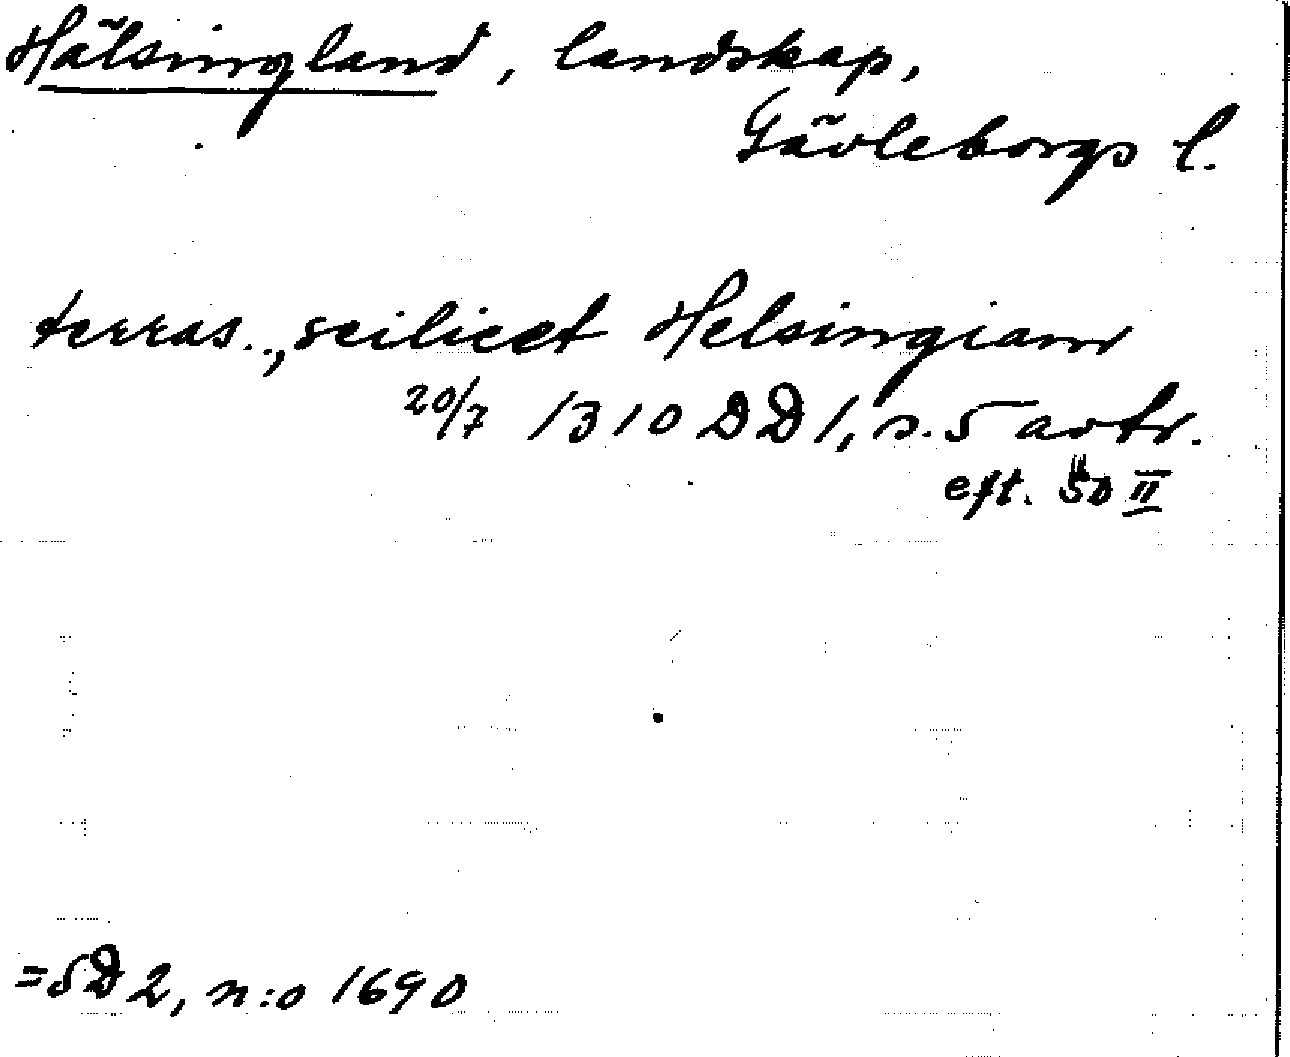 Hälsingland, landskap,
Gävleborgs l.
terras.., scilicet Helsingiam
20/7 1310 DD 1, s. 5 avtr.
eft. SD II
=SD 2, n:o 1690